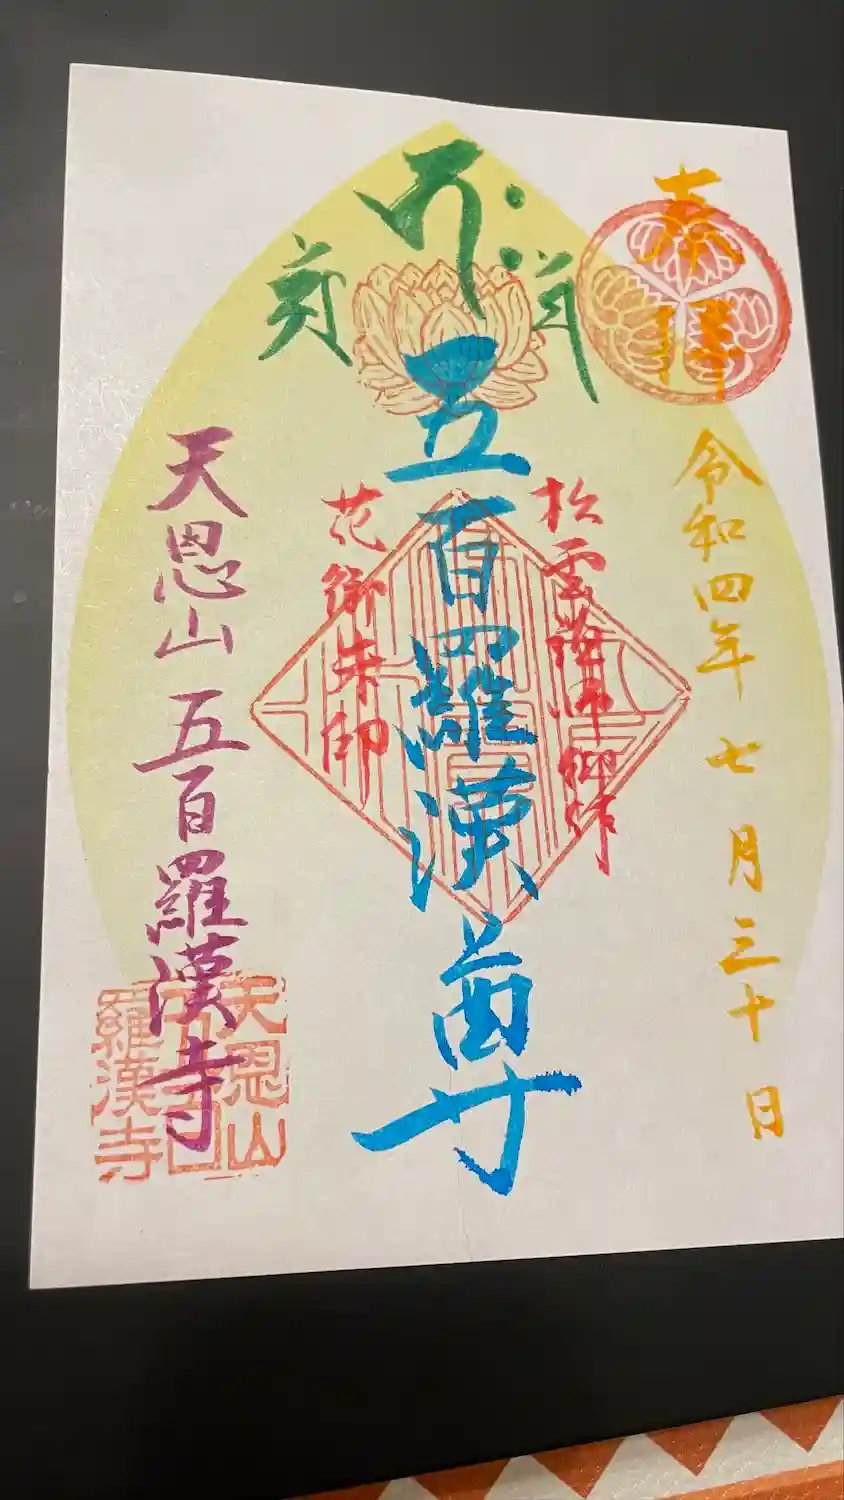 奉拝
令和四年七月三十日
五百羅漢尊
花御朱印
天恩山五百羅漢寺
天恩山
五百
羅漢寺